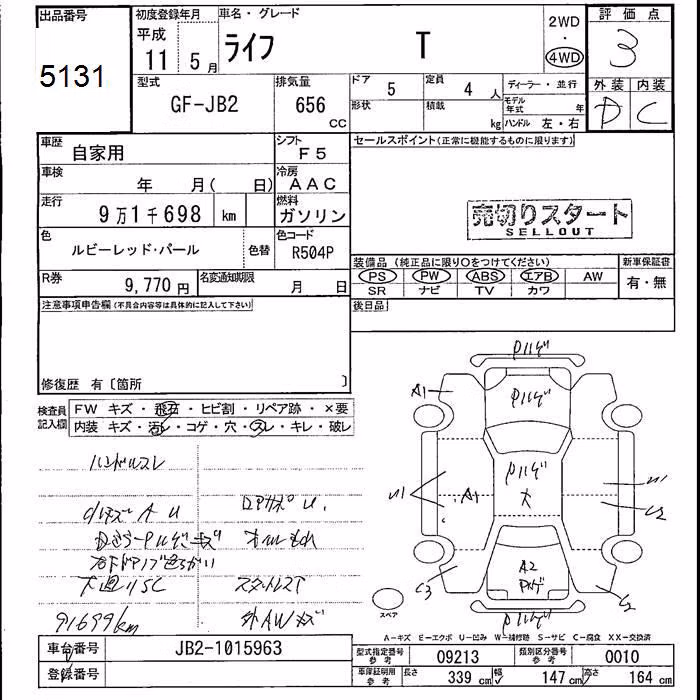 出品番号
5131
初度登録年月
平成 11 5月
車名・グレード
ライフ T
2WD
・
4WD
評価点
3
型式
GF-JB2
排気量
656 CC
ドア 5
定員 4人
形状
積載 kg
ディーラー・並行
モデル年式 年
ハンドル 左・右
外装 内装
D C
車歴
自家用
シフト
F5
車検
年 月( 日)
冷房
AAC
走行
9万1千698 km
燃料
ガソリン
色
ルビーレッド・パール
色替
色コード
R504P
R券
9,770円
名変通知期限
月 日
セールスポイント(正常に機能するものに限ります)
売切りスタート
SELLOUT
装備品 (純正品に限り○をつけてください)
PS PW ABS エアB AW
SR ナビ TV カワ
新車保証書
有・無
後日品
注意事項申告欄(不具合内容等は具体的に記入して下さい)
修復歴 有〔箇所 〕
検査員記入欄
FW キズ・飛石・ヒビ割・リペア跡・×要
内装 キズ・汚レ・コゲ・穴・スレ・キレ・破レ
ハンドルスレ
A U
91699km
Pハゲ
A1
Pハゲ
Pハゲ
大
U1
A1
U1
C2
A2
Pハゲ
C3
C2
Pハゲ
スペア
A-キズ E-エクボ U-凹み W-補修跡 S-サビ C-腐食 XX-交換済
車台番号
JB2-1015963
登録番号
型式指定番号 参考
09213
類別区分番号 参考
0010
車庫証明用 参考
長さ 339cm 幅 147cm 高さ 164cm